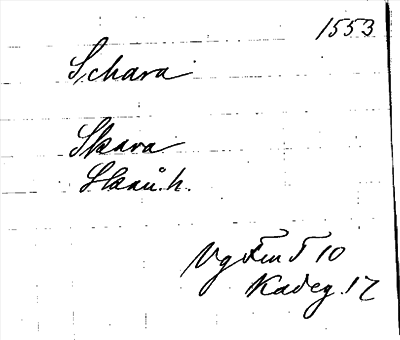 1553
Schara
Skara
Skan.h.
Vg Fen 5 10
Kadeg. 17